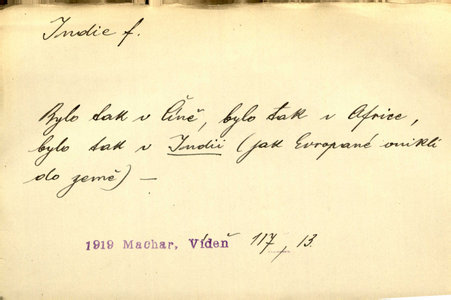 Indie f.
Bylo tak v Číně, bylo tak v Africe,
bylo tak v Indii (jak Evropané vnikli
do země) —
1919 Machar, Vídeň 117, 13.